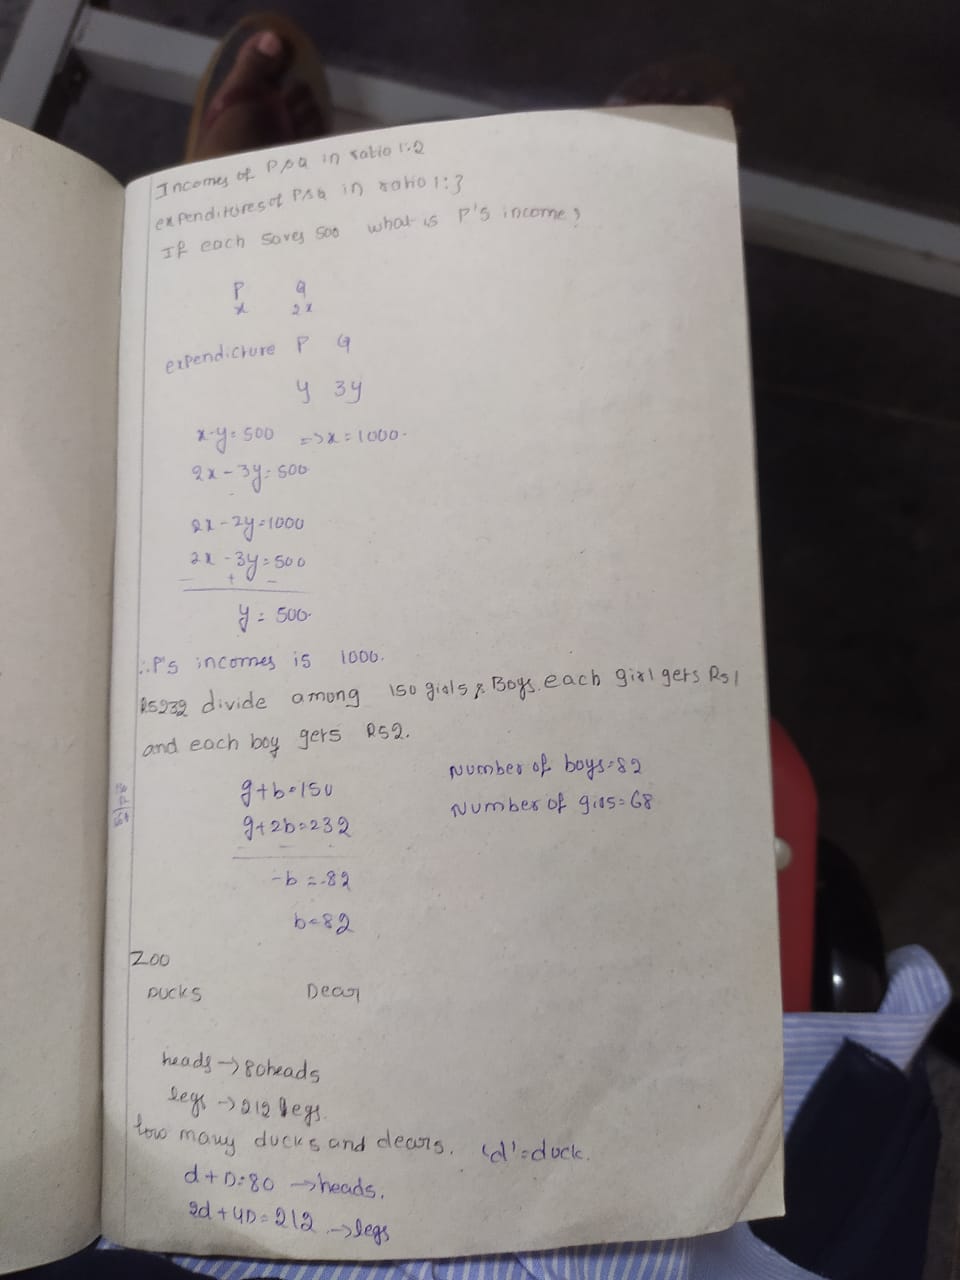 Incomes of P & Q in ratio 1:2
expenditures of P & Q in ratio 1:3
If each saves 500 what is P's income?
P Q
x 2x
expendicture P Q
y 3y
x-y=500 => x=1000.
2x-3y=500
2x-2y=1000
2x-3y=500
- + -
y=500.
∴ P's incomes is 1000.
RS232 divide among 150 girls & Boys. each girl gets Rs1
and each boy gets RS2.
g+b=150
g+2b=232
- - -
-b=-82
b=82
Number of boys=82
Number of girls=68
Zoo
DUCKS Dear
heads → 80heads
legs → 212 legs.
how many ducks and dears. 'd'=duck.
d+D=80 → heads.
2d+4D=212 → legs